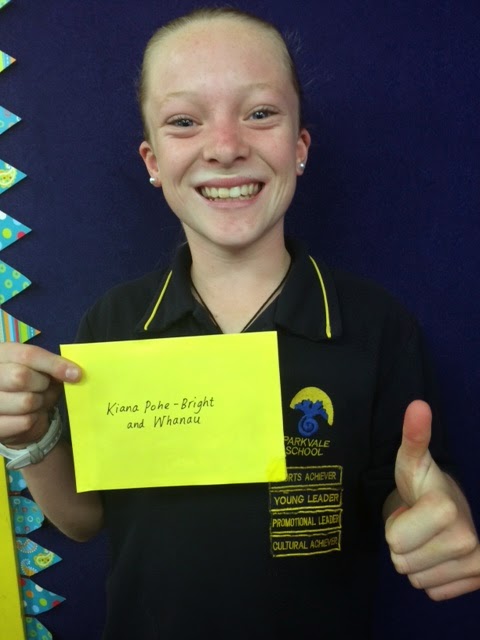 Kiana Pohe-Bright
and Whanau
PARKVALE
SCHOOL
RTS ACHIEVER
YOUNG LEADER
PROMOTIONAL LEADER
CULTURAL ACHIEVER